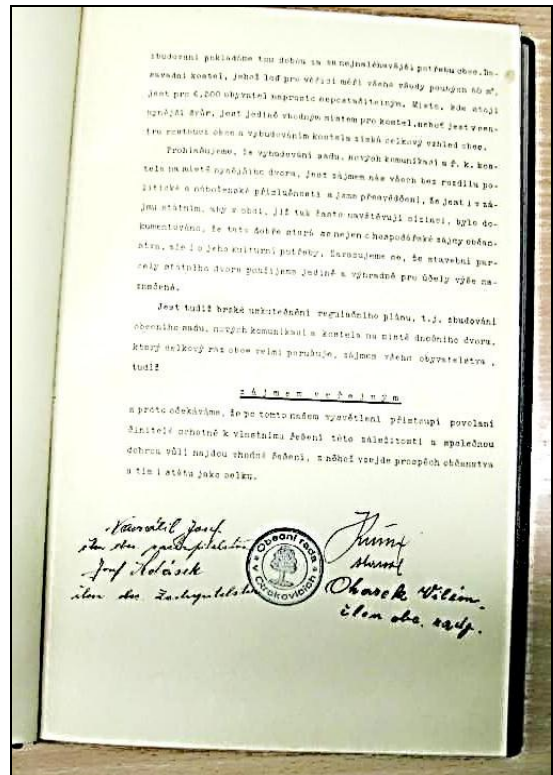 zbudování pokládáme tou dobou za nejnaléhavější potřebu obce. Do-
savadní kostel, jehož loď pro věřící měří všeho všudy pouhých 65 m²,
jest pro 6,200 obyvatel naprosto nepostačitelným. Místo, kde stojí
nynější dvůr, jest jedině vhodným místem pro kostel, neboť jest v cen-
tru rostoucí obce a vybudováním kostela získá celkový vzhled obce.
Prohlašujeme, že vybudování sadu, nových komunikací a ř. k. kos-
tela na místě nynějšího dvora, jest zájmem nás všech bez rozdílu po-
litické a náboženské příslušnosti a jsme přesvědčeni, že jest i v zá-
jmu státním, aby v obci, již tak často navštěvují cizinci, bylo do-
kumentováno, že tato dobře stará se nejen o hospodářské zájmy občan-
stva, ale i o jeho kulturní potřeby. Zavazujeme se, že stavební par-
cely státního dvora použijeme jedině a výhradně pro účely výše na-
značené.
Jest tudíž brzké uskutečnění regulačního plánu, t.j. zbudování
obecního sadu, nových komunikací a kostela na místě dnešního dvora,
který celkový ráz obce velmi porušuje, zájmem všeho obyvatelstva,
tudíž
zájmem veřejným
a proto očekáváme, že po tomto našem vysvětlení přistoupí povolaní
činitelé ochotně k vlastnímu řešení této záležitosti a společnou
dobrou vůlí najdou vhodné řešení, z něhož vzejde prospěch občanstva
a tím i státu jako celku.
Navrátil Josef
člen obc. zastupitelstva
Josef Kolásek
člen obc. Zastupitelstva
Obecní rada
v Otrokovicích
starosta
Oharek Vilém
člen obc. rady.